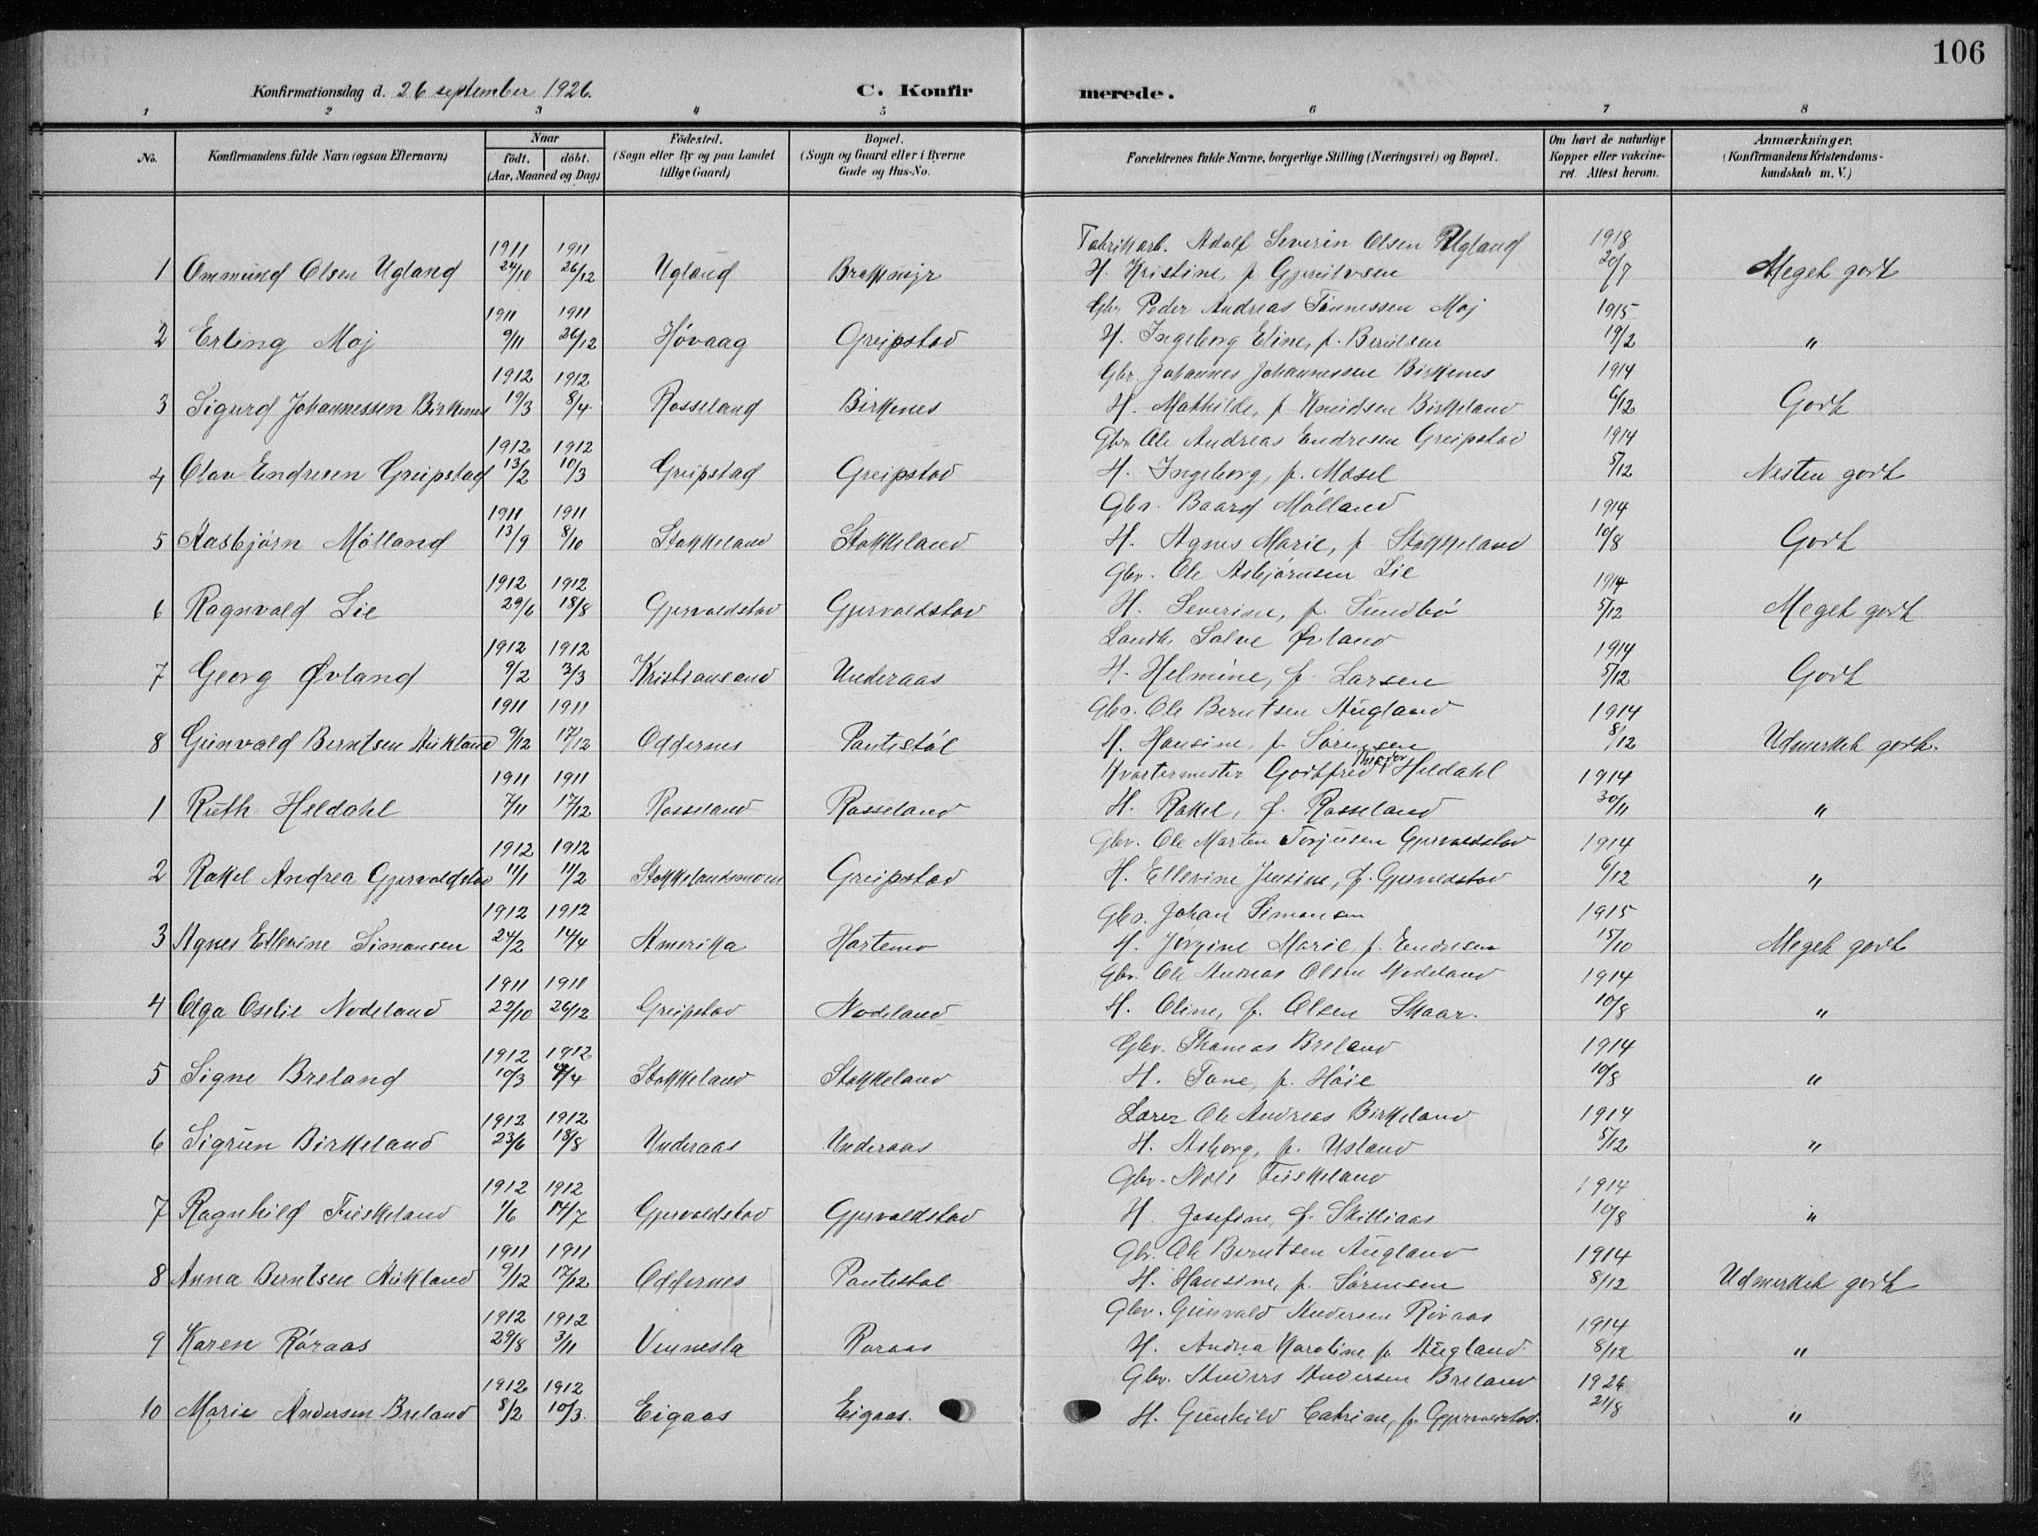 106
Konfirmationsdag d. 26 september 1926.
C. Konfirmerede.
1 2 3 4 5 6 7 8
No.
Konfirmandens fulde Navn (ogsaa Efternavn)
Naar
födt. döbt.
(Aar, Maaned og Dag)
Födested.
(Sogn eller By og paa Landet
tillige Gaard)
Bopæl.
(Sogn og Gaard eller i Byerne
Gade og Hus-No.
Forældrenes fulde Navne, borgerlige Stilling (Næringsvei) og Bopæl.
Om havt de naturlige
Kopper eller vakcine-
ret. Attest herom.
Anmærkninger.
(Konfirmandens Kristendoms-
kundskab m. V.)
1911 1911 Fabrikarb. Adolf Severin Olsen Ugland 1918
1 Ommund Olsen Ugland 24/10 26/12 Ugland Brakmyr H. Kristine, f. 20/7 Meget godt
1911 1911 Gbr. Peder Andreas Tønnessen Moj 1915
2 Erling Moj 9/11 26/12 Høvaag Greipstad H. Ingeborg Eline, f. Berntsen 19/2 "
1912 1912 Gbr. Johannes Johannessen Birkenes 1914
3 Sigurd Johannessen Birkenes 19/3 8/4 Rosseland Birkenes H. Mathilde, f. Knudsen Birkeland 6/12 Godt
1912 1912 Gbr. Ole Andreas Endresen Greipstad 1914
4 Olav Endresen Greipstad 13/2 10/3 Greipstad Greipstad H. Ingeborg, f. Mosel 5/12 Nesten godt
1911 1911 Gbr. Baard Mølland 1914
5 Aasbjørn Mølland 13/9 8/10 Stokkeland Stokkeland H. Agnes Marie, f. Stokkeland 10/8 Godt
1912 1912 Gbr. Ole Asbjørnsen Lie 1914
6 Ragnvald Lie 29/6 18/8 Gjervoldstad Gjervoldstad H. Severine, f. Sundbø 5/12 Meget godt
1912 1912 Landh. Salve Øvland 1914
7 Georg Øvland 9/2 3/3 Kristiansand Underaas H. Helmine, f. Larsen 5/12 Godt
1911 1911 Gbr. Ole Berntsen Augland 1914
8 Gunvald Berntsen Aukland 9/12 17/12 Oddernes Pantestøl H. Hansine, f. Sørensen 8/12 Udmerket godt.
1911 1911 Kvartermester Godtfred Heldahl 1914
1 Ruth Heldahl 7/11 17/12 Rosseland Rosseland H. Rakel, f. Rosseland 30/11 "
1912 1912 Gbr. Ole Marten Torjusen Gjervoldstad 1914
2 Rakel Andrea Gjervoldstad 11/1 11/2 Stokkelandsmoen Greipstad H. Ellevine Jensine, f. Gjervoldstad 6/12 "
1912 1912 Gbr. Johan Simonsen 1915
3 Agnes Ellevine Simonsen 24/2 14/4 Amerika Hortemo H. Jørgine Marie, f. Endresen 15/10 Meget godt
1911 1911 Gbr. Ole Andreas Olsen Nodeland 1914
4 Olga Oselie Nodeland 22/10 26/12 Greipstad Nodeland H. Oline, f. Olsen Skaar. 10/8 "
1912 1912 Gbr. Thomas Breland 1914
5 Signe Breland 10/3 /4 Stokkeland Stokkeland H. Tone, f. Høie 10/8 "
1912 1912 Lærer Ole Andreas Birkeland 1914
6 Sigrun Birkeland 23/6 18/8 Underaas Underaas H. Asborg, f. Usland 5/12 "
1912 1912 Gbr. Nils Fuskeland 1914
7 Ragnhild Fuskeland 1/6 14/7 Gjervoldstad Gjervoldstad H. Josefine, f. Skilliaas 10/8 "
1911 1911 Gbr. Ole Berntsen Augland 1914
8 Anna Berntsen Aukland 9/12 17/12 Oddernes Pantestøl H. Hansine, f. Sørensen 8/12 Udmerket godt
1912 1912 Gbr. Gunvald Andersen Røraas 1914
9 Karen Røraas 29/8 3/11 Vennesla Røraas H. Andrea Karoline, f. Augland 8/12 "
1912 1912 Gbr. Anders Andersen Breland 1926
10 Marie Andersen Breland 8/2 10/3 Eigaas Eigaas. H. Gunhild Catrine, f. Gjervoldstad. 21/8 "